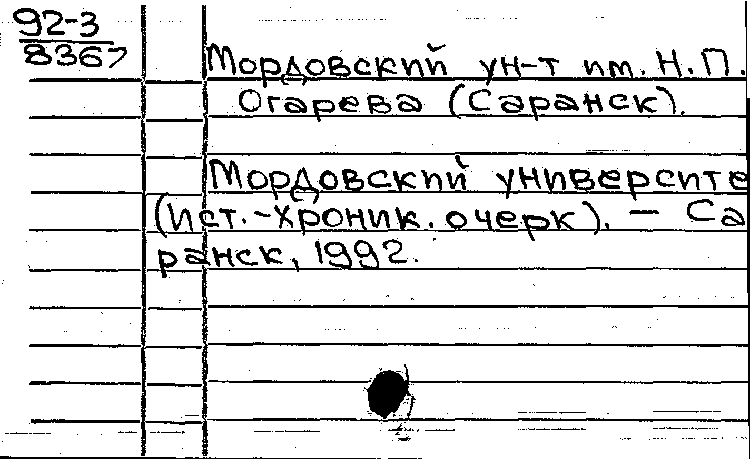 92-3
8367
Мордовский ун-т им. Н.П.
Огарева (Саранск).
Мордовский университе
(ист.-хроник. очерк). — Са
ранск, 1992.